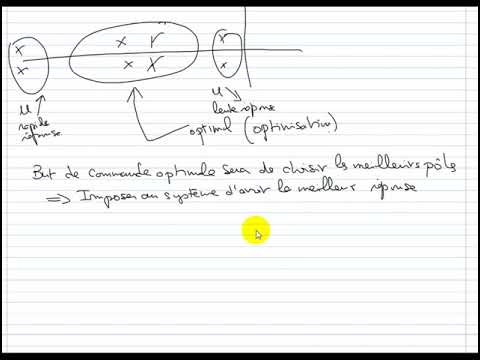 x x r x
x x x x
u u
rapide réponse
lente réponse
optimal (optimisation)
But de commande optimale sera de choisir les meilleurs pôles
⇒ Imposer au système d'avoir le meilleur réponse